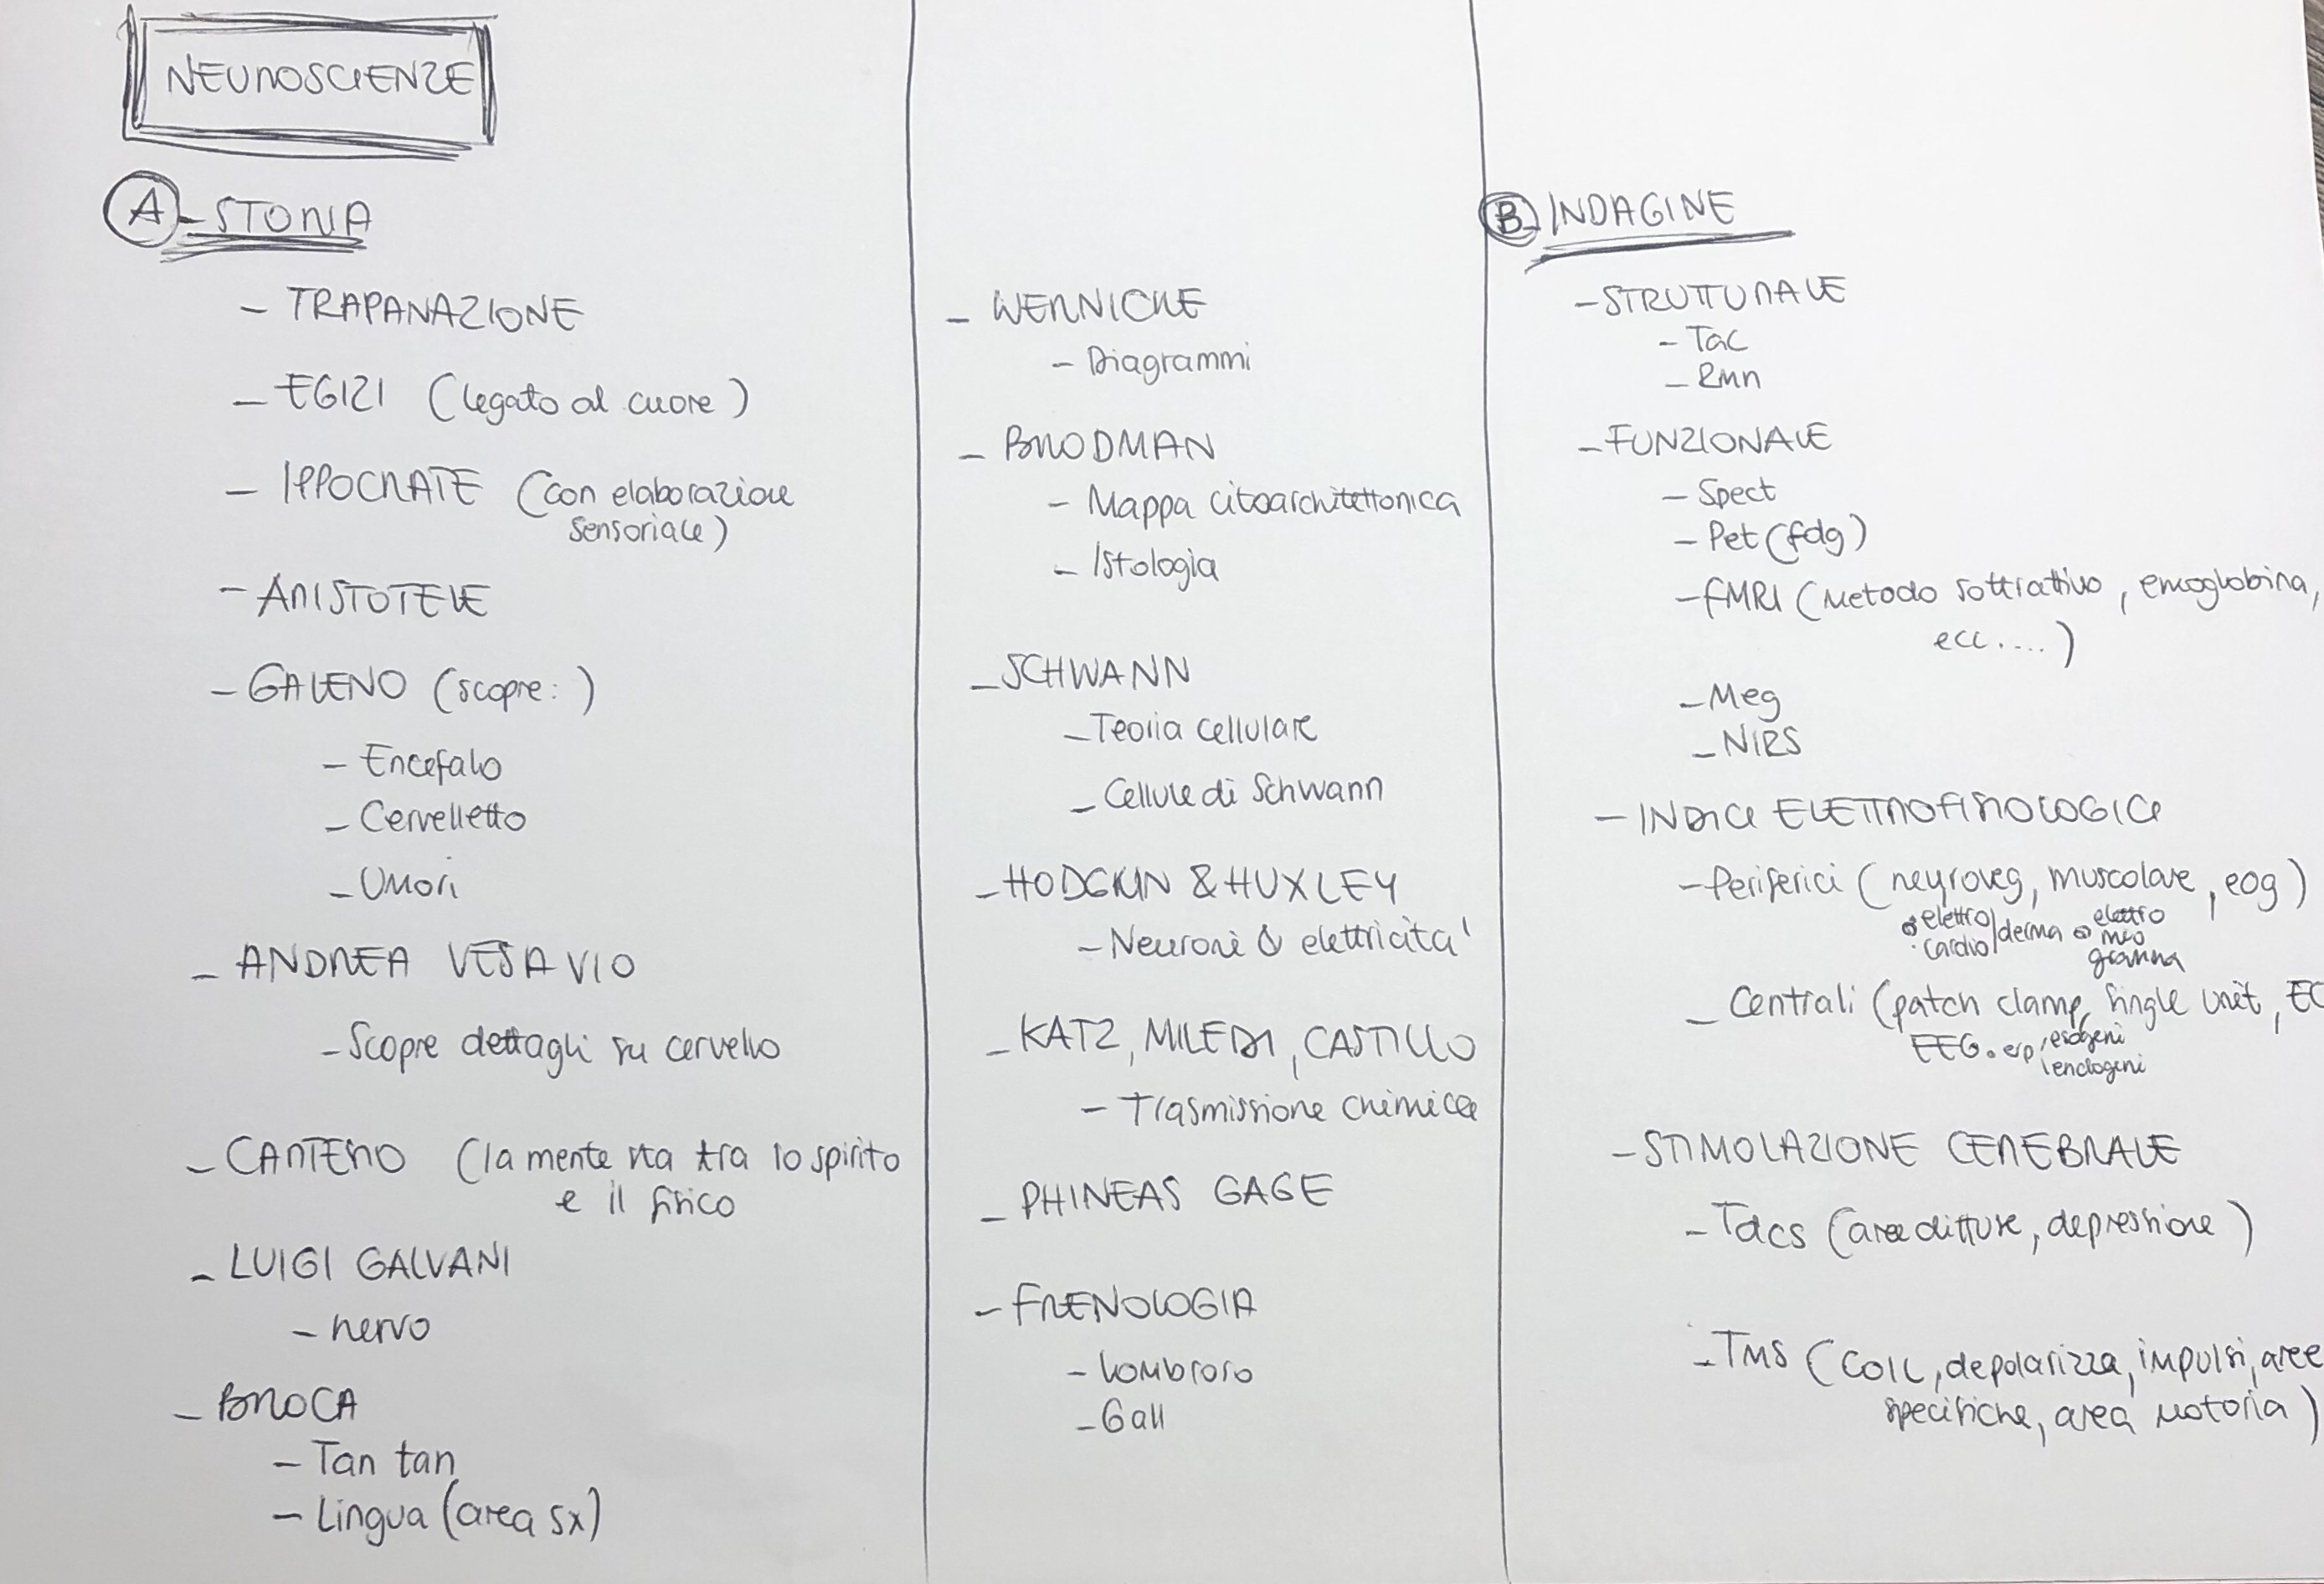 NEUROSCIENZE
A - STORIA
- TRAPANAZIONE
- EGIZI (legato al cuore)
- IPPOCRATE (con elaborazione
sensoriale)
- ARISTOTELE
- GALENO (scopre: )
- Encefalo
- Cervelletto
- Umori
- ANDREA VESAVIO
- Scopre dettagli su cervello
- CARTESIO (la mente sta tra lo spirito
e il fisico
- LUIGI GALVANI
- nervo
- BROCA
- Tan tan
- Lingua (area sx)
- WERNICKE
- Diagrammi
- BRODMAN
- Mappa citoarchitettonica
- Istologia
- SCHWANN
- Teoria cellulare
- Cellule di Schwann
- HODGKIN & HUXLEY
- Neuroni & elettricità
- KATZ, MILEDI, CASTILLO
- Trasmissione chimica
- PHINEAS GAGE
- FRENOLOGIA
- Lombroso
- Gall
B - INDAGINE
- STRUTTURALE
- Tac
- Rmn
- FUNZIONALE
- Spect
- Pet (fdg)
- fMRI (Metodo sottrattivo, emoglobina,
ecc....)
- Meg
- NIRS
- INDICI ELETTROFISIOLOGICI
- Periferici (neuroveg, muscolare, eog)
elettro/derma elettro
cardio mio
gramma
- Centrali (patch clamp, single unit,
EEG. erp, esogeni
endogeni
- STIMOLAZIONE CEREBRALE
- Tdcs (aree diffuse, depressione)
- TMS (COIL, depolarizza, impulsi, aree
specifiche, area motoria)